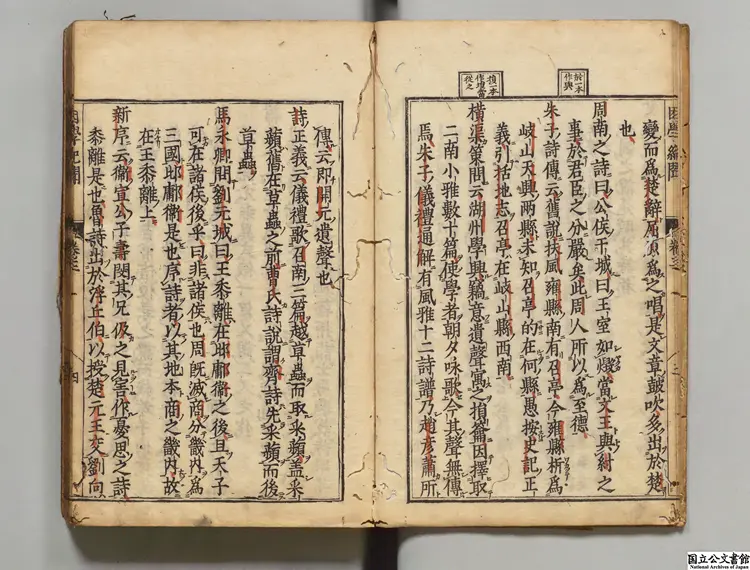 困學紀聞
卷之三
於一本作與
損一本作塤當從之
變而為楚辭屈原為之唱是文章鼓吹多出於楚
也
周南之詩曰公侯干城曰王室如燬當文王與紂之
事於君臣之分嚴矣此周人所以為至德
朱子詩傳云舊說扶風雍縣南有召亭今雍縣析為
岐山天興兩縣未知召亭的在何縣愚按史記正
義引括地志召亭在岐山縣西南
橫渠策問云湖州學興竊意遺聲寓之損籥因擇取
二南小雅數十篇使學者朝夕咏歌今其聲無傳
焉朱子儀禮通解有風雅十二詩譜乃趙彥肅所
傳云即開元遺聲也
詩正義云儀禮歌召南三篇越草蟲而取采蘋蓋采
蘋舊在草蟲之前曹氏詩說謂齊詩先采蘋而後
草蟲
馬永卿問劉元城曰王黍離在邶鄘衛之後且天子
可在諸侯後乎曰非諸侯也周既滅商分畿內為
三國邶鄘衛是也序詩者以其地本商之畿內故
在王黍離上
新序云衛宣公子壽閔其兄伋之見害作憂思之詩
黍離是也魯詩出於浮丘伯以授楚元王交劉向
困學紀聞
卷之三
四
国立公文書館
National Archives of Japan